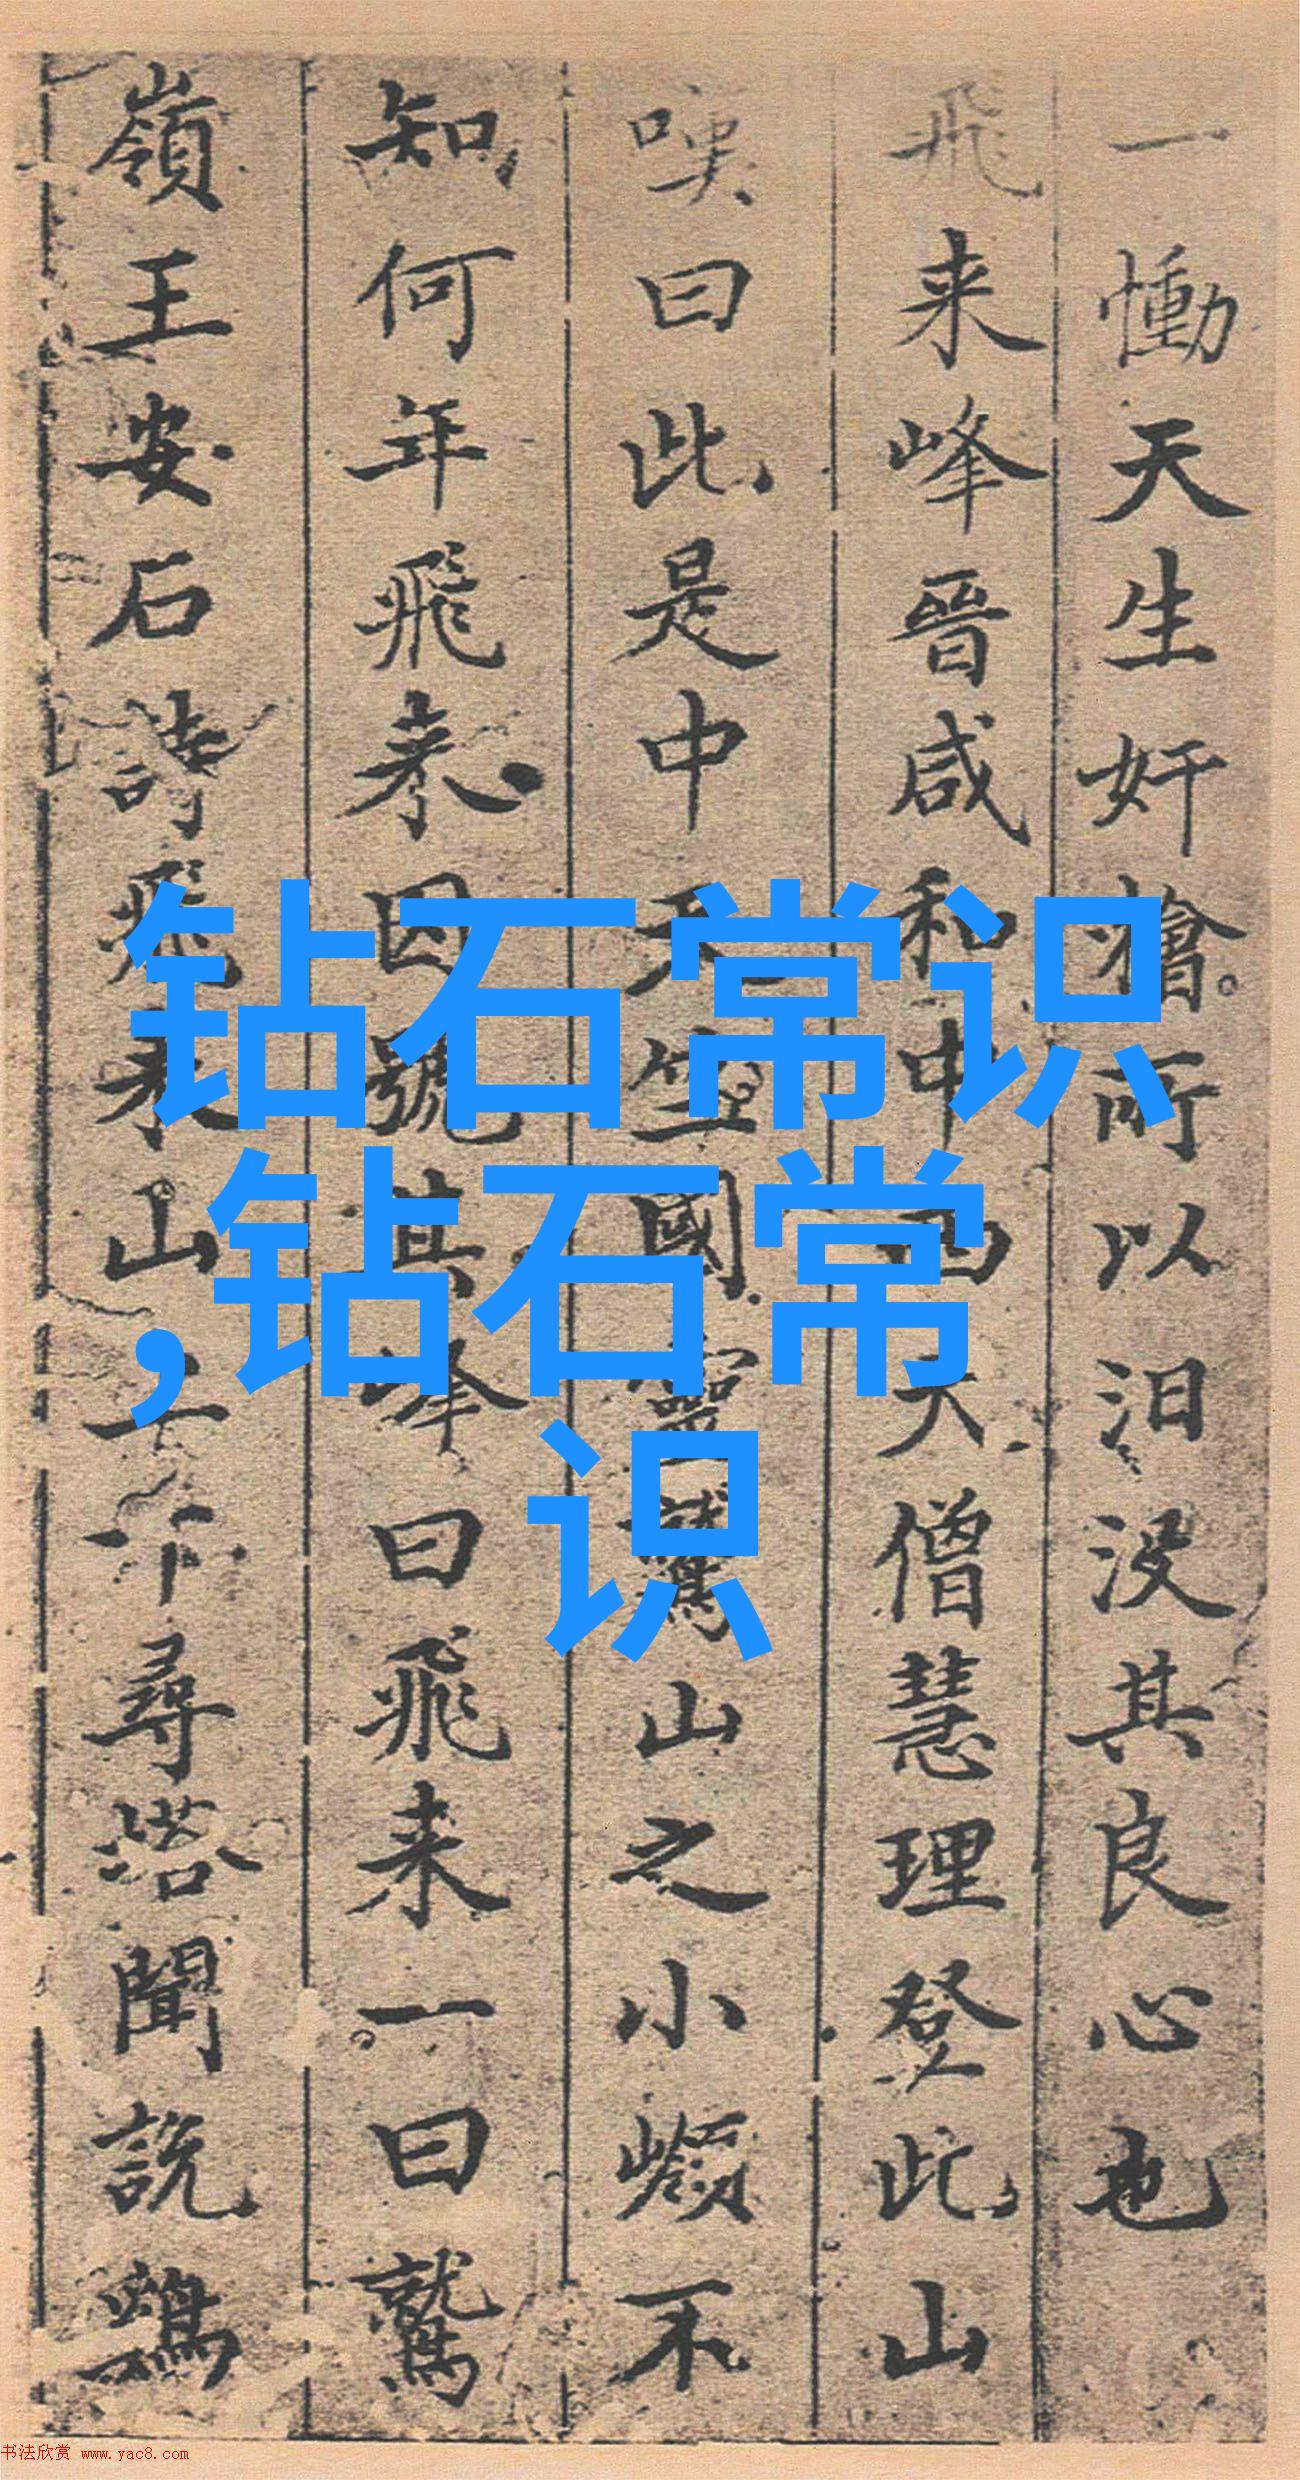 一慟天生奸檜所以汨没其良心也
飛来峰晉咸和中西天僧慧理登此山
嘆曰此是中天竺國靈鷲山之小嶺不
知何年飛来因號其峰曰飛来一曰鷲
嶺王安石詩飛来山上千尋塔聞說鷄
钻石常识
,钻石常
识
书法欣赏 www.yac8.com